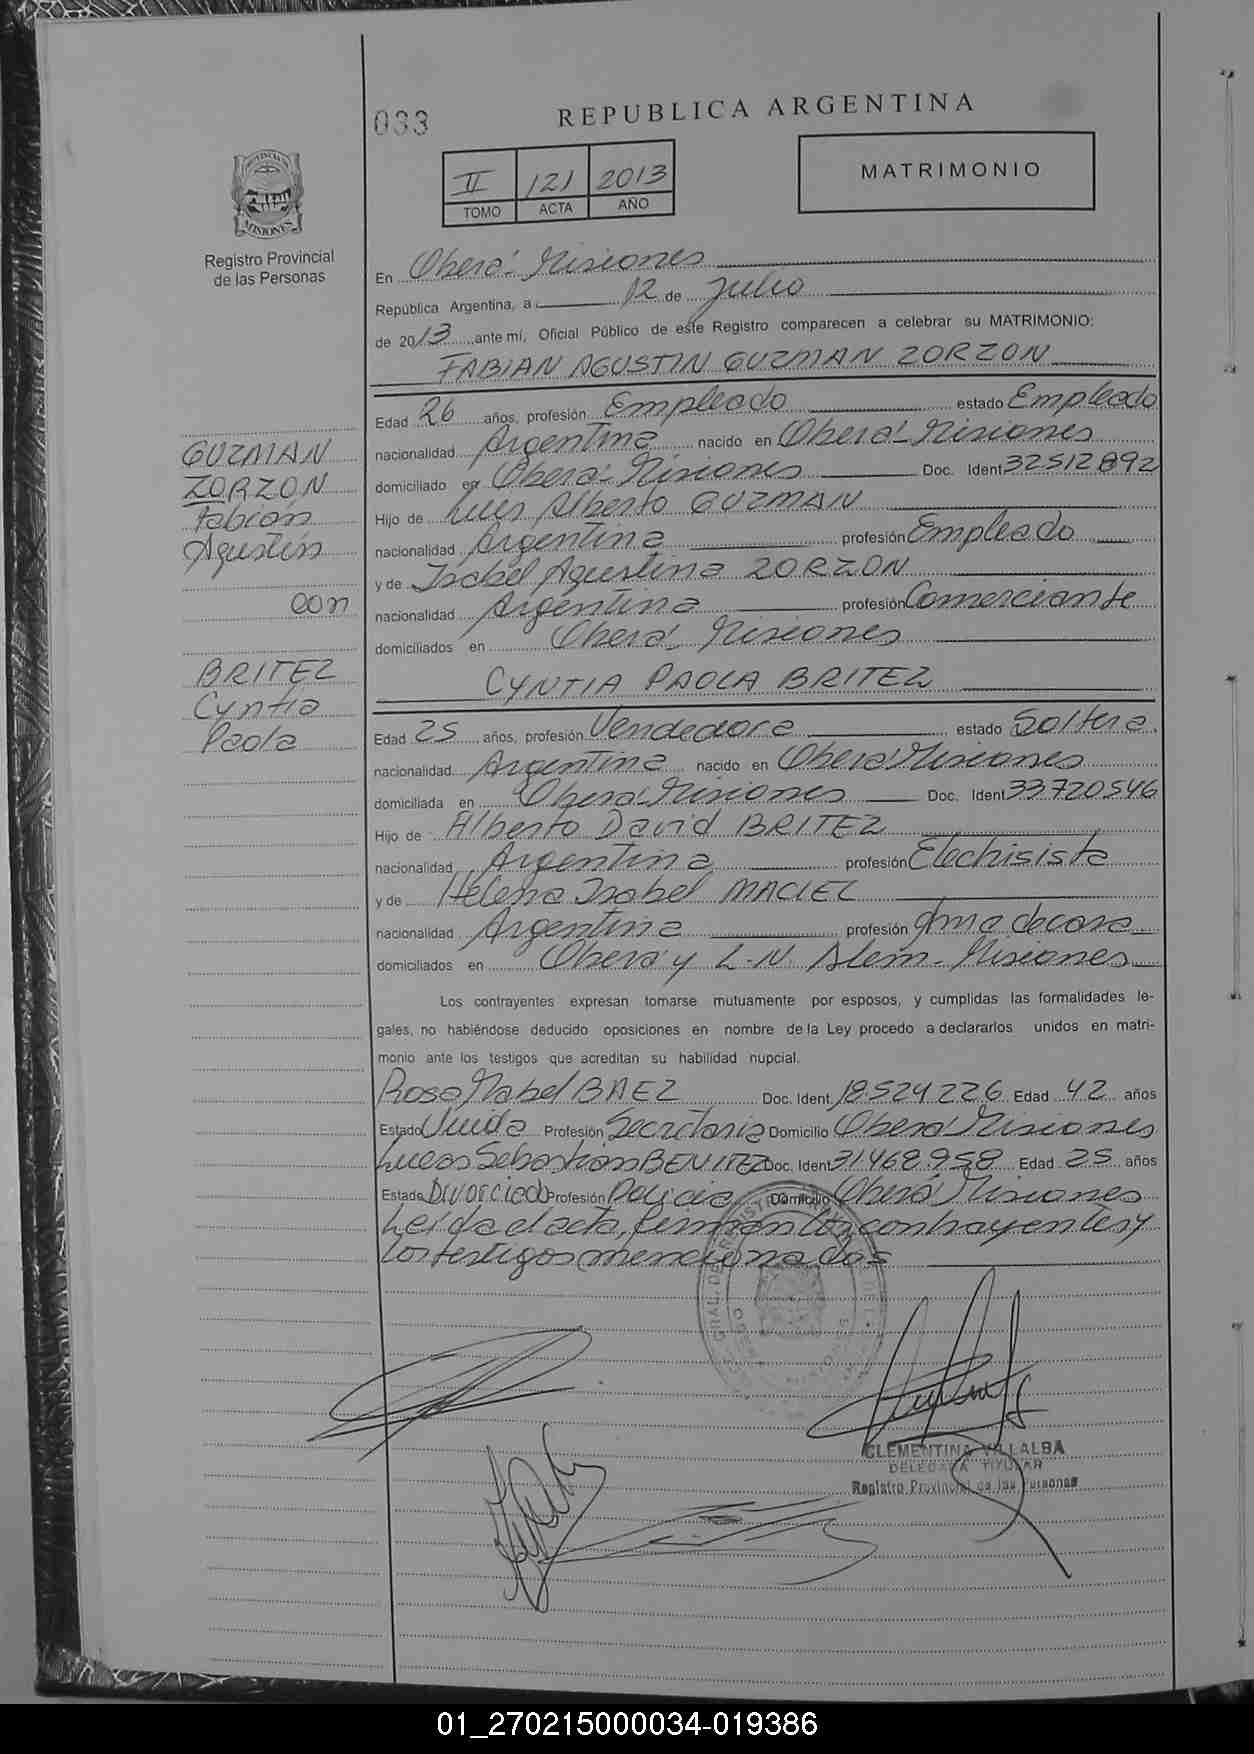 033
REPUBLICA ARGENTINA
II 121 2013
TOMO ACTA AÑO
MATRIMONIO
PROVINCIA DE
MISIONES
Registro Provincial
de las Personas
En Oberá - Misiones
República Argentina, a 12 de Julio
de 2013 ante mí, Oficial Público de este Registro comparecen a celebrar su MATRIMONIO:
FABIAN AGUSTIN GUZMAN ZORZON
GUZMAN
ZORZON
Fabián
Agustín
con
BRITEZ
Cyntia
Paola
Edad 26 años, profesión Empleado estado Empleado
nacionalidad Argentina nacido en Oberá - Misiones
domiciliado en Oberá - Misiones Doc. Ident 32512892
Hijo de Luis Alberto GUZMAN
nacionalidad Argentina profesión Empleado
y de Isabel Agustina ZORZON
nacionalidad Argentina profesión Comerciante
domiciliados en Oberá, Misiones
CYNTIA PAOLA BRITEZ
Edad 25 años, profesión Vendedora estado Soltera
nacionalidad Argentina nacido en Oberá Misiones
domiciliada en Oberá - Misiones Doc. Ident 33720546
Hijo de Alberto David BRITEZ
nacionalidad Argentina profesión Electricista
y de Helena Isabel MACIEL
nacionalidad Argentina profesión Ama de casa
domiciliados en Oberá y L.N. Alem - Misiones
Los contrayentes expresan tomarse mutuamente por esposos, y cumplidas las formalidades le-
gales, no habiéndose deducido oposiciones en nombre de la Ley procedo a declararlos unidos en matri-
monio ante los testigos que acreditan su habilidad nupcial.
Rosa Mabel BAEZ Doc. Ident. 18.524226 Edad 42 años
Estado Viuda Profesión Secretaria Domicilio Oberá Misiones
Lucas Sebastián BENITEZ Doc. Ident 31468.958 Edad 25 años
Estado Divorciado Profesión Policía Domicilio Oberá Misiones
Leída el acta, firman los contrayentes y
los testigos mencionados
CLEMENTINA VILLALBA
DELEGADA TITULAR
Registro Provincial de las Personas
01_270215000034-019386